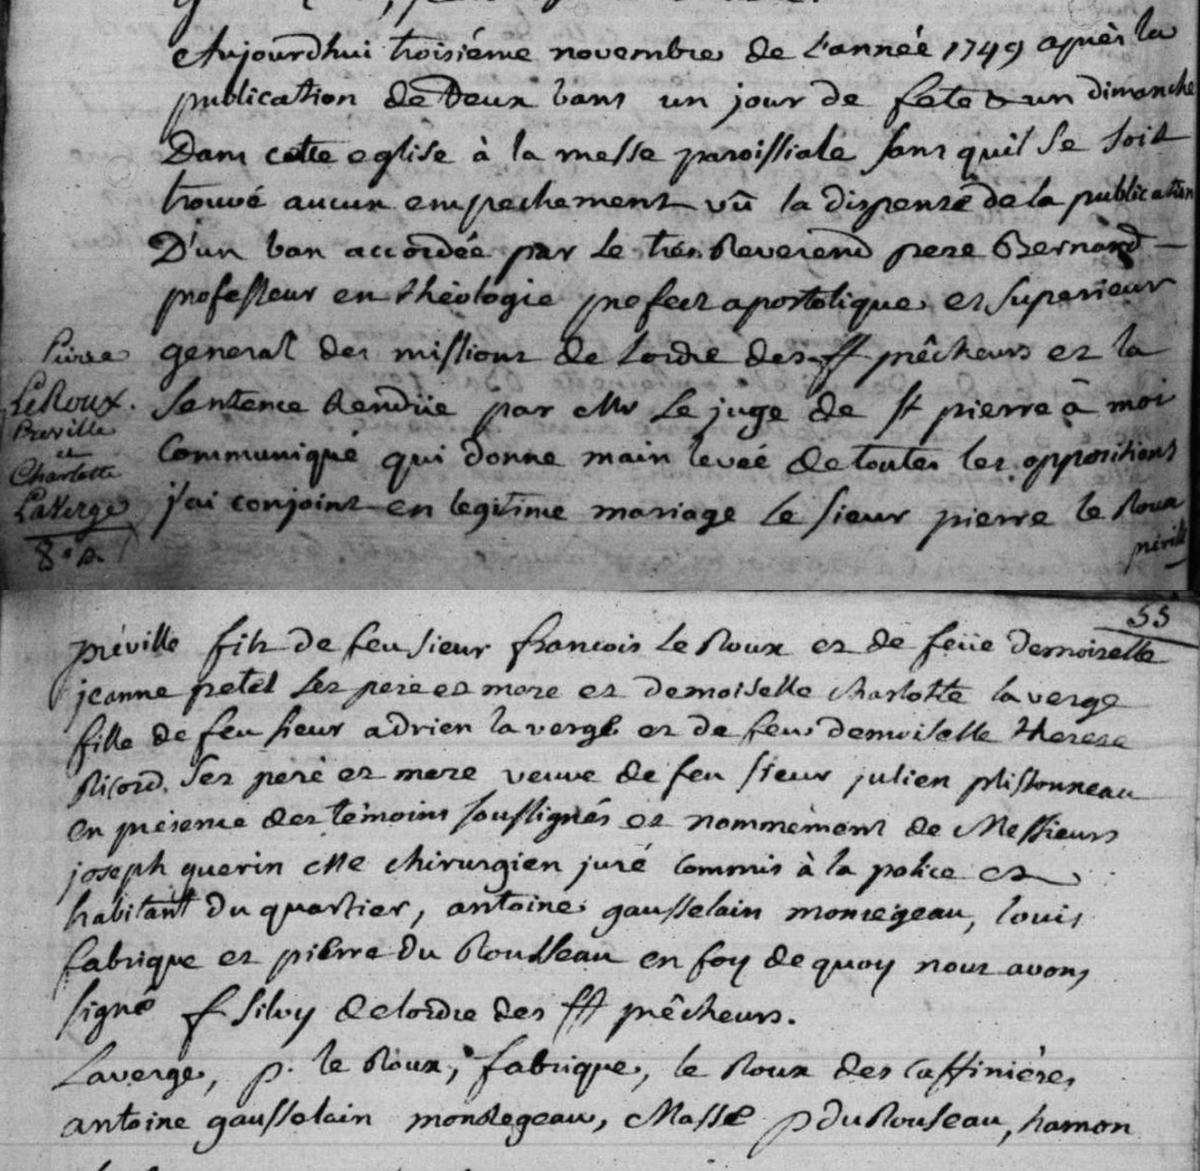 Aujourdhui troisiéme novembre de l'année 1749 après la
publication de Deux bans un jour de fete & un dimanche
Dans cette eglise à la messe paroissiale sans quil se soit
trouvé aucun empechement vû la dispense de la publication
D'un ban accordée par le tres Reverend pere Bernard
professeur en théologie prefect apostolique et superieur
general des missions de lordre des ff prêcheurs et la
Sentence Rendüe par Mr Le juge de St pierre à moi
Communiqué qui donne main levée de toutes les oppositions
j'ai conjoint en legitime mariage Le sieur pierre le Roux
préville
Pierre
LeRoux.
Preville
et
Charlotte
LaVerge
55
préville fils de feu sieur francois Le Roux et de feüe demoiselle
jeanne petel Ses pere et mere et demoiselle charlotte la verge
fille de feu sieur adrien la verge et de feue demoiselle therese
Ricord. Ses pere et mere veuve de feu sieur julien plissonneau
En présence des témoins soussignés et nommément de Messieurs
joseph querin Me chirurgien juré Commis à la police et
habitant du quartier, antoine gausselain monregeau, louis
fabrique et pierre du Rousseau en foy de quoy nous avons
signé f Silvy de lordre des ff prêcheurs.
Laverge, p. le Roux, fabrique, le Roux des Caffinières
antoine gausselain mondegeau, Massé p du Rouseau, hamon